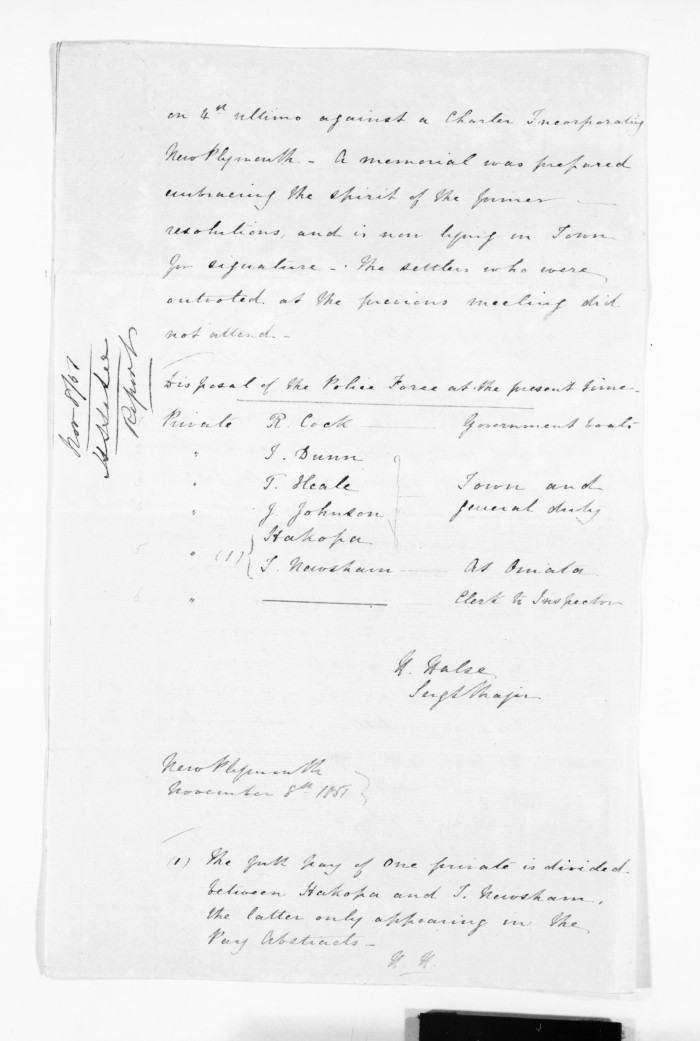 on 4th ultimo against a Charter Incorporating
New Plymouth - A memorial was prepared
embracing the spirit of the former
resolutions, and is now lying in Town
for signature - The settlers who were
outvoted at the previous meeting did
not attend -
Disposal of the Police Force at the present time -
Private R. Cock Government boats
" I. Dunn
" T. Heale Town and
" J. Johnson general duty
Hakopa
" (1) { T. Newsham At Omata
" Clerk to Inspector
H. Halse
Sergt Major
New Plymouth
November 8th 1851 }
(1) The full pay of one private is divided
between Hakopa and T. Newsham,
the latter only appearing in the
Pay Abstracts -
H H.
Nov 8/51
Report